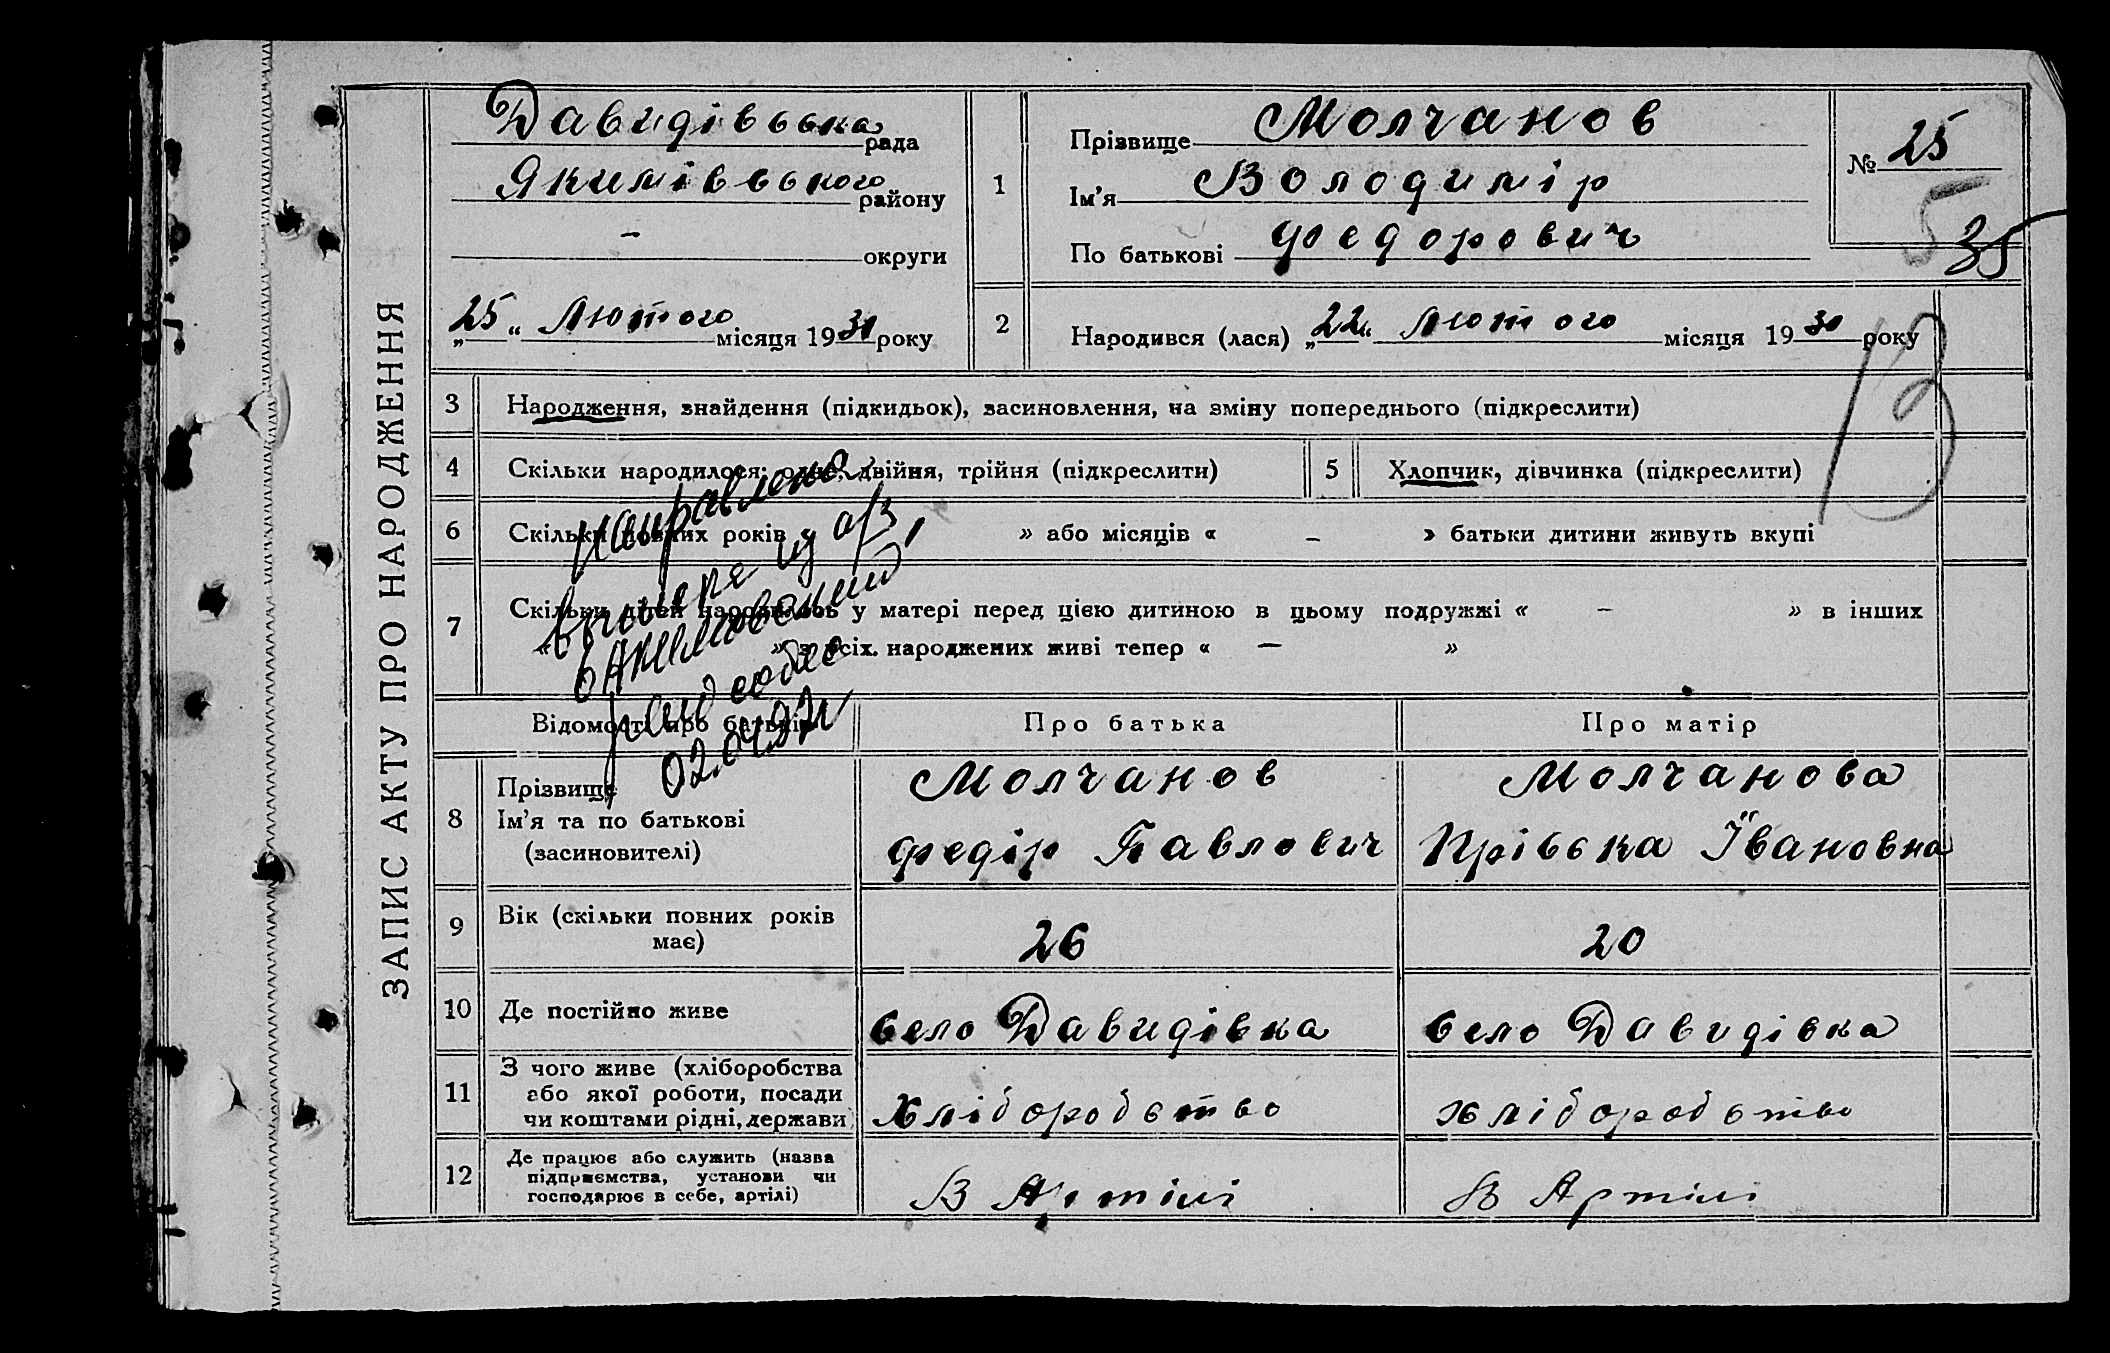 ЗАПИС АКТУ ПРО НАРОДЖЕННЯ
Давидівська рада
Якимівського району
— округи
„25“ Лютого місяця 1931 року
1
Прізвище Молчанов
Ім’я Володимір
По батькові Федорович
№ 25
5
35
2
Народився (лася) „22“ Лютого місяця 19 року
13
3 Народження, знайдення (підкидьок), засиновлення, на зміну попереднього (підкреслити)
4 Скільки народилося: одне, двійня, трійня (підкреслити)
5 Хлопчик, дівчинка (підкреслити)
6 Скільки повних років » або місяців « — » батьки дитини живуть вкупі
7 Скільки дітей народилось у матері перед цією дитиною в цьому подружжі « — » в інших
« » з усіх народжених живі тепер « — »
Направлена
выпись из а/з
в Акимовский
райсобес
02.04.92г
Відомості про батьків
Про батька
Про матір
8 Прізвище
Ім’я та по батькові
(засиновителі)
Молчанов
Федір Павлович
Молчанова
Пріська Івановна
9 Вік (скільки повних років
має)
26
20
10 Де постійно живе
село Давидівка
село Давидівка
11 З чого живе (хліборобства
або якої роботи, посади
чи коштами рідні, держави)
хліборобство
хліборобство
12 Де працює або служить (назва
підприємства, установи чи
господарює в себе, артілі)
В Артілі
В Артілі